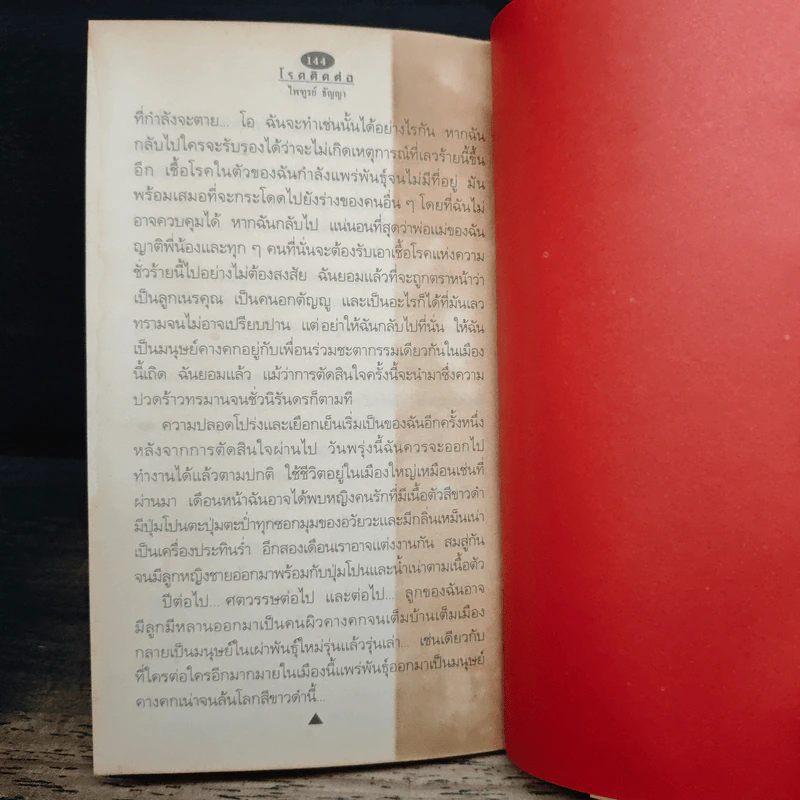 144
โรคติดต่อ
ไพฑูรย์ ธัญญา
ที่กำลังจะตาย... โอ ฉันจะทำเช่นนั้นได้อย่างไรกัน หากฉัน
กลับไปใครจะรับรองได้ว่าจะไม่เกิดเหตุการณ์ที่เลวร้ายนี้ขึ้น
อีก เชื้อโรคในตัวของฉันกำลังแพร่พันธุ์จนไม่มีที่อยู่ มัน
พร้อมเสมอที่จะกระโดดไปยังร่างของคนอื่น ๆ โดยที่ฉันไม่
อาจควบคุมได้ หากฉันกลับไป แน่นอนที่สุดว่าพ่อแม่ของฉัน
ญาติพี่น้องและทุก ๆ คนที่นั่นจะต้องรับเอาเชื้อโรคแห่งความ
ชั่วร้ายนี้ไปอย่างไม่ต้องสงสัย ฉันยอมแล้วที่จะถูกตราหน้าว่า
เป็นลูกเนรคุณ เป็นคนอกตัญญู และเป็นอะไรก็ได้ที่มันเลว
ทรามจนไม่อาจเปรียบปาน แต่อย่าให้ฉันกลับไปที่นั่น ให้ฉัน
เป็นมนุษย์คางคกอยู่กับเพื่อนร่วมชะตากรรมเดียวกันในเมือง
นี้เถิด ฉันยอมแล้ว แม้ว่าการตัดสินใจครั้งนี้จะนำมาซึ่งความ
ปวดร้าวทรมานจนชั่วนิรันดรก็ตามที
ความปลอดโปร่งและเยือกเย็นเริ่มเป็นของฉันอีกครั้งหนึ่ง
หลังจากการตัดสินใจผ่านไป วันพรุ่งนี้ฉันควรจะออกไป
ทำงานได้แล้วตามปกติ ใช้ชีวิตอยู่ในเมืองใหญ่เหมือนเช่นที่
ผ่านมา เดือนหน้าฉันอาจได้พบหญิงคนรักที่มีเนื้อตัวสีขาวดำ
มีปุ่มโปนตะปุ่มตะป่ำทุกซอกมุมของอวัยวะและมีกลิ่นเหม็นเน่า
เป็นเครื่องประทินร่ำ อีกสองเดือนเราอาจแต่งงานกัน สมสู่กัน
จนมีลูกหญิงชายออกมาพร้อมกับปุ่มโปนและน้ำเน่าตามเนื้อตัว
ปีต่อไป... ศตวรรษต่อไป และต่อไป... ลูกของฉันอาจ
มีลูกมีหลานออกมาเป็นคนผิวคางคกจนเต็มบ้านเต็มเมือง
กลายเป็นมนุษย์ในเผ่าพันธุ์ใหม่รุ่นแล้วรุ่นเล่า... เช่นเดียวกับ
ที่ใครต่อใครอีกมากมายในเมืองนี้แพร่พันธุ์ออกมาเป็นมนุษย์
คางคกเน่าจนล้นโลกสีขาวดำนี้...